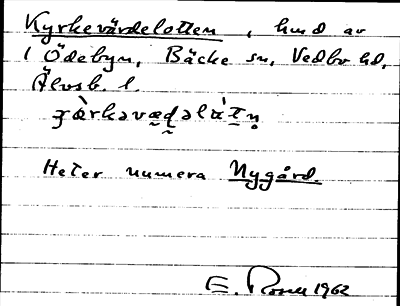 Kyrkevärdelotten, hmd av
1 Ödebyn, Bäcke sn, Vedbo hd,
Älvsb. l.
Heter numera Nygård.
E. Rosell 1962